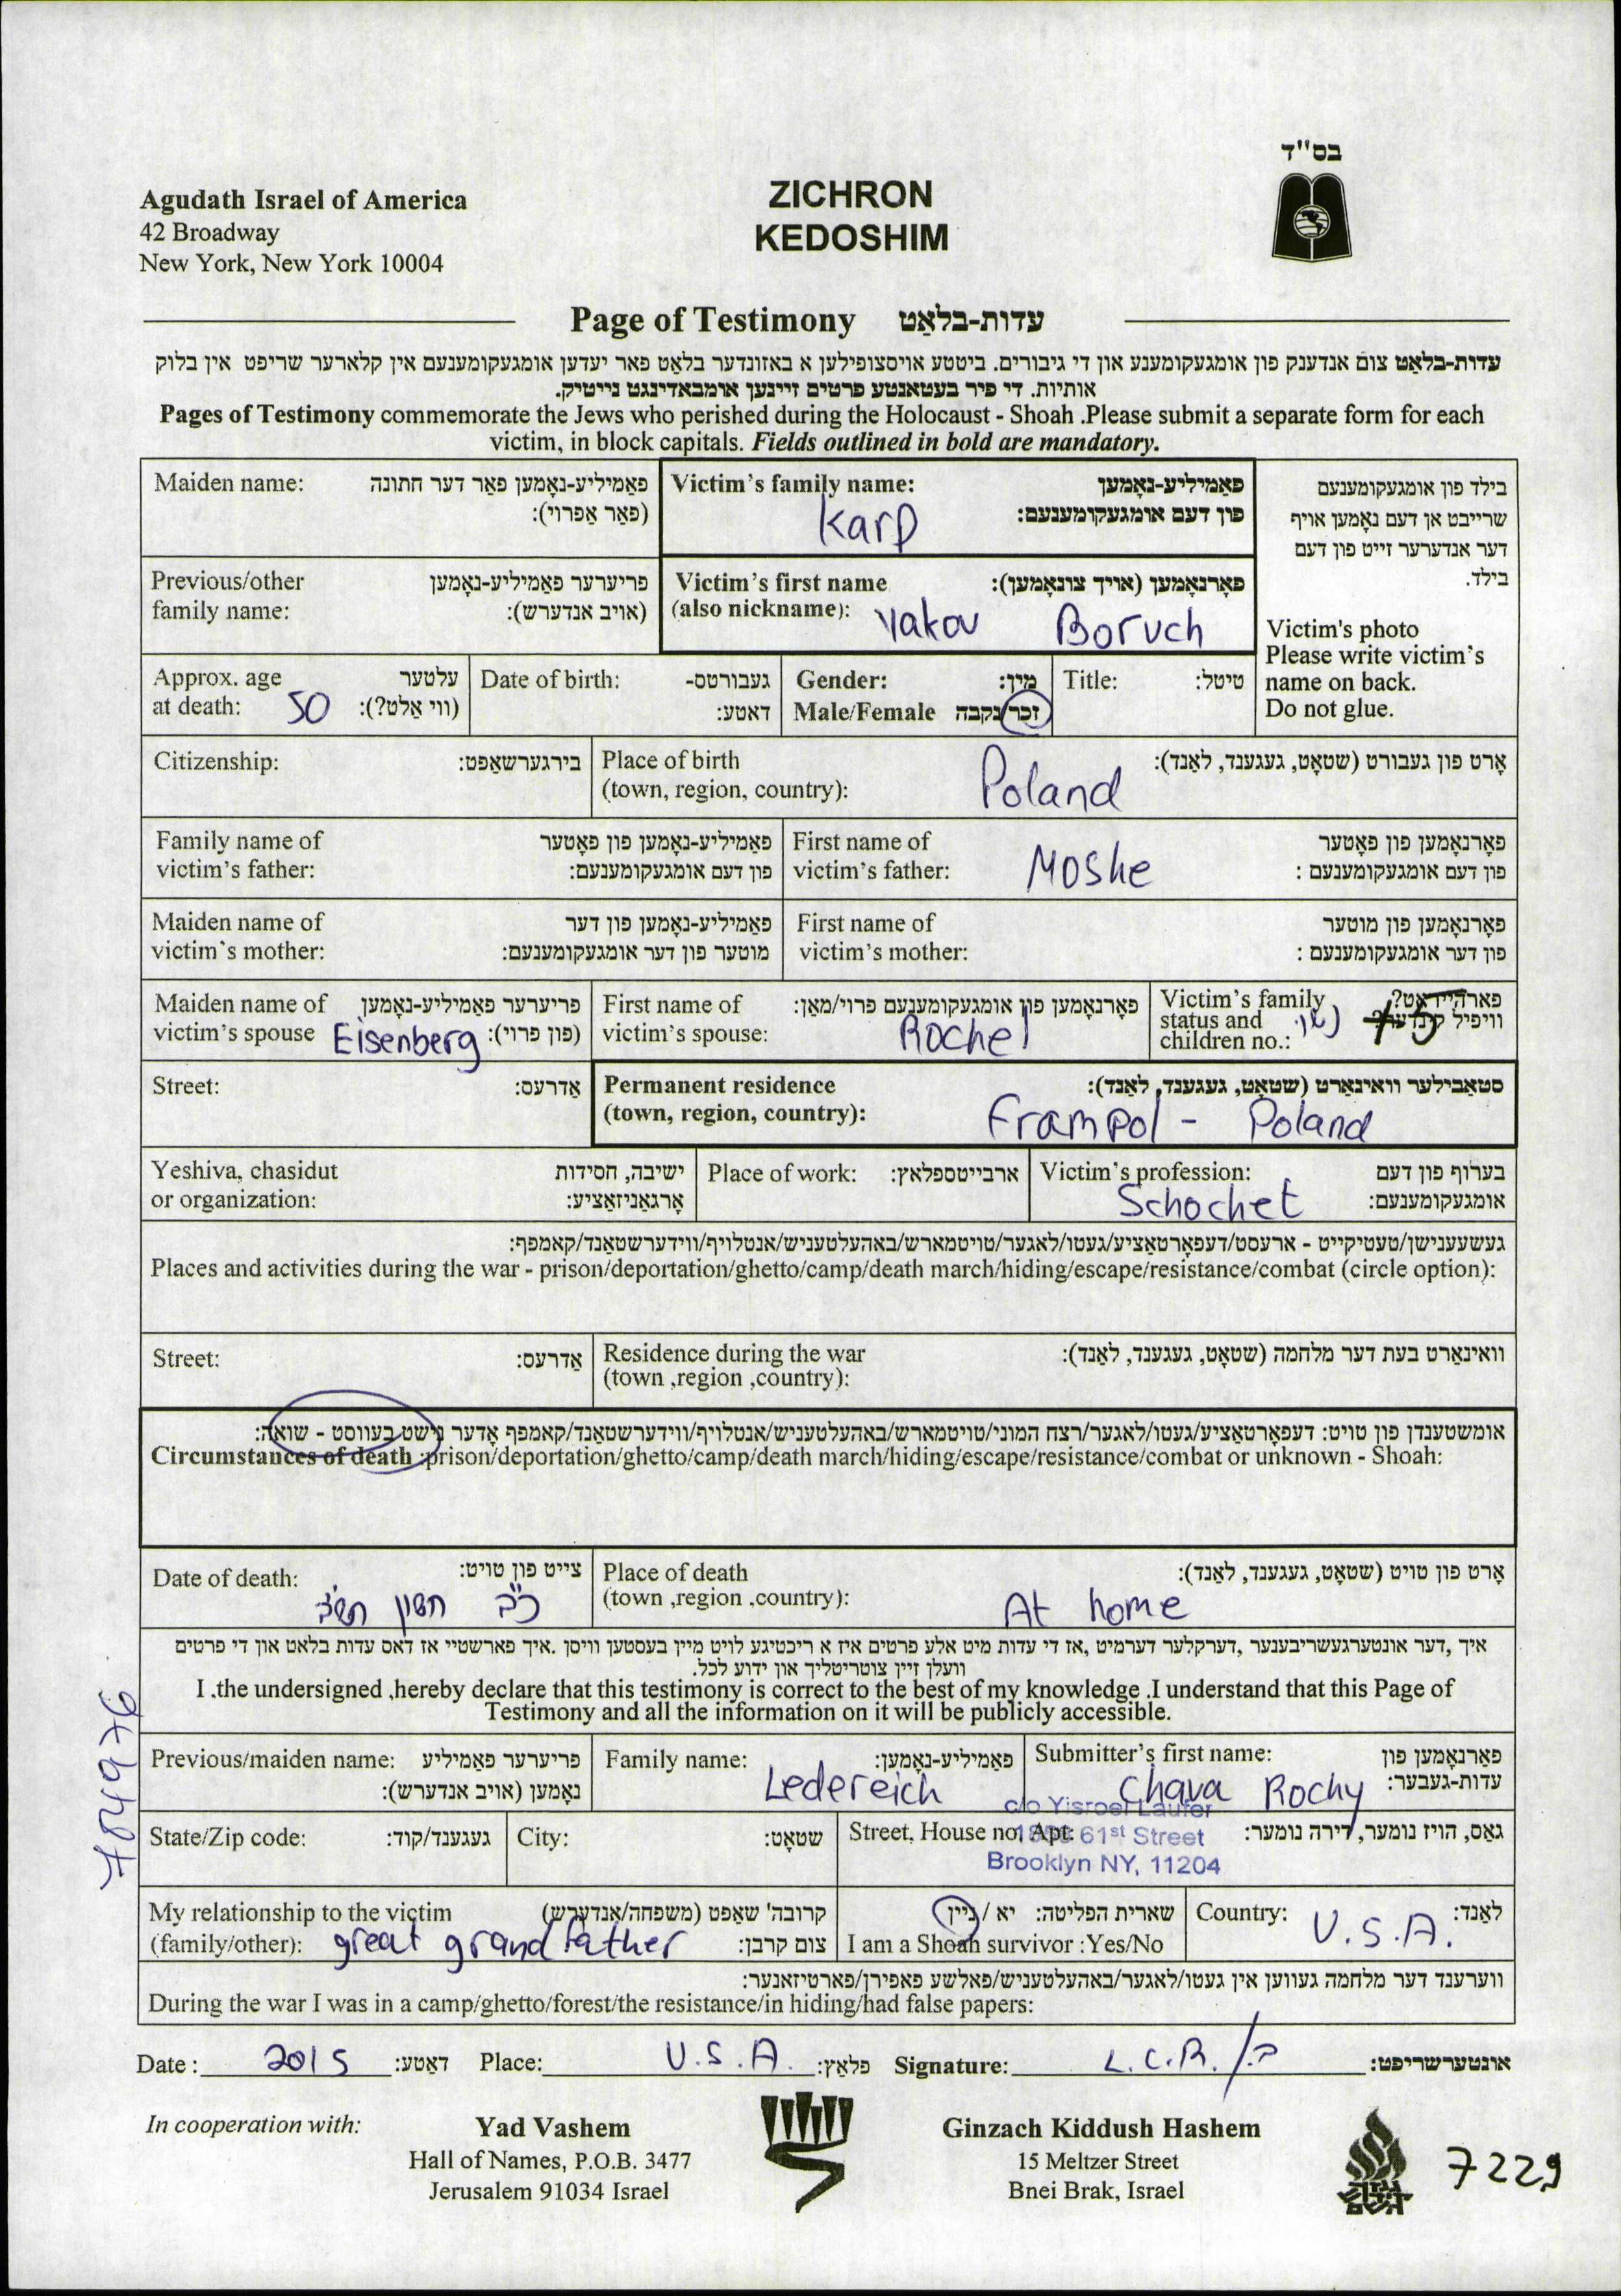 בס"ד
Agudath Israel of America
42 Broadway
New York, New York 10004
ZICHRON
KEDOSHIM
Page of Testimony עדות-בלאַט
עדות-בלאַט צום אנדענק פון אומגעקומענע און די גיבורים. ביטטע אויסצופילען א באזונדער בלאט פאר יעדען אומגעקומענעם אין קלארער שריפט אין בלוק
אותיות. די פיר בעטאנטע פרטים זיינען אומבאדינגט נייטיק.
Pages of Testimony commemorate the Jews who perished during the Holocaust - Shoah .Please submit a separate form for each
victim, in block capitals. Fields outlined in bold are mandatory.
Maiden name: פאַמיליע-נאָמען פאַר דער חתונה
(פאַר אַפרוי):
Victim's family name: פאַמיליע-נאָמען
פון דעם אומגעקומענעם:
Karp
בילד פון אומגעקומענעם
שרייבט אן דעם נאָמען אויף
דער אנדערער זייט פון דעם
בילד.
Victim's photo
Please write victim's
name on back.
Do not glue.
Previous/other פריערער פאַמיליע-נאָמען
family name: (אויב אנדערש):
Victim's first name פאָרנאָמען (אויך צונאָמען):
(also nickname): Yakov Boruch
Approx. age עלטער
at death: 50 (ווי אַלט?):
Date of birth: געבורטס-
דאטע:
Gender: מין:
Male/Female זכר/נקבה
Title: טיטל:
Citizenship: בירגערשאַפט:
Place of birth אָרט פון געבורט (שטאָט, געגענד, לאַנד):
(town, region, country): Poland
Family name of פאַמיליע-נאָמען פון פאָטער
victim's father: פון דעם אומגעקומענעם:
First name of פאָרנאָמען פון פאָטער
victim's father: Moshe פון דעם אומגעקומענעם :
Maiden name of פאַמיליע-נאָמען פון דער
victim's mother: מוטער פון דער אומגעקומענעם:
First name of פאָרנאָמען פון מוטער
victim's mother: פון דער אומגעקומענעם :
Maiden name of פריערער פאַמיליע-נאָמען
victim's spouse Eisenberg (פון פרוי):
First name of פאָרנאָמען פון אומגעקומענעם פרוי/מאַן:
victim's spouse: Rochel
Victim's family פארהייראַט?
status and וויפיל קינדער?
children no.: 5
Street: אַדרעס:
Permanent residence סטאַבילער וואוינאָרט (שטאָט, געגענד, לאַנד):
(town, region, country): Frampol - Poland
Yeshiva, chasidut ישיבה, חסידות
or organization: אָרגאַניזאַציע:
Place of work: ארבייטספלאץ:
Victim's profession: בערוף פון דעם
Schochet אומגעקומענעם:
געשעענישן/טעטיקייט - ארעסט/דעפאָרטאַציע/געטו/לאגער/טויטמארש/באהעלטעניש/אנטלויף/ווידערשטאַנד/קאמפף:
Places and activities during the war - prison/deportation/ghetto/camp/death march/hiding/escape/resistance/combat (circle option):
Street: אַדרעס:
Residence during the war וואוינאָרט בעת דער מלחמה (שטאָט, געגענד, לאַנד):
(town ,region ,country):
אומשטענדן פון טויט: דעפאָרטאַציע/געטו/לאגער/רצח המוני/טויטמארש/באהעלטעניש/אנטלויף/ווידערשטאַנד/קאמפף אָדער נישט בעוואוסט - שואה:
Circumstances of death :prison/deportation/ghetto/camp/death march/hiding/escape/resistance/combat or unknown - Shoah:
Date of death: צייט פון טויט:
כ"ב חשון
Place of death אָרט פון טויט (שטאָט, געגענד, לאַנד):
(town ,region .country): At home
איך ,דער אונטערגעשריבענער ,דערקלער דערמיט ,אז די עדות מיט אלע פרטים איז א ריכטיגע לויט מיין בעסטען וויסן .איך פארשטיי אז דאס עדות בלאט און די פרטים
וועלן זיין צוטריטליך און ידוע לכל.
I .the undersigned ,hereby declare that this testimony is correct to the best of my knowledge .I understand that this Page of
Testimony and all the information on it will be publicly accessible.
Previous/maiden name: פריערער פאַמיליע
נאָמען (אויב אנדערש):
Family name: פאַמיליע-נאָמען:
Ledereich
Submitter's first name: פאָרנאָמען פון
Chava Rochy עדות-געבער:
State/Zip code: געגענד/קוד:
City: שטאָט:
c/o Yisroel Laufer
Street, House no, Apt: 61st Street גאס, הויז נומער, דירה נומער:
Brooklyn NY, 11204
My relationship to the victim קרובה' שאַפט (משפחה/אנדערש)
(family/other): great grandfather צום קרבן:
שארית הפליטה: יא / ניין
I am a Shoah survivor :Yes/No
Country: U.S.A. לאַנד:
ווערענד דער מלחמה געווען אין געטו/לאגער/באהעלטעניש/פאלשע פאפירן/פארטיזאנער:
During the war I was in a camp/ghetto/forest/the resistance/in hiding/had false papers:
Date : 2015 דאַטע: Place: U.S.A. פלאַץ: Signature: L.C.R. אונטערשריפט:
In cooperation with:
Yad Vashem
Hall of Names, P.O.B. 3477
Jerusalem 91034 Israel
Ginzach Kiddush Hashem
15 Meltzer Street
Bnei Brak, Israel
7229